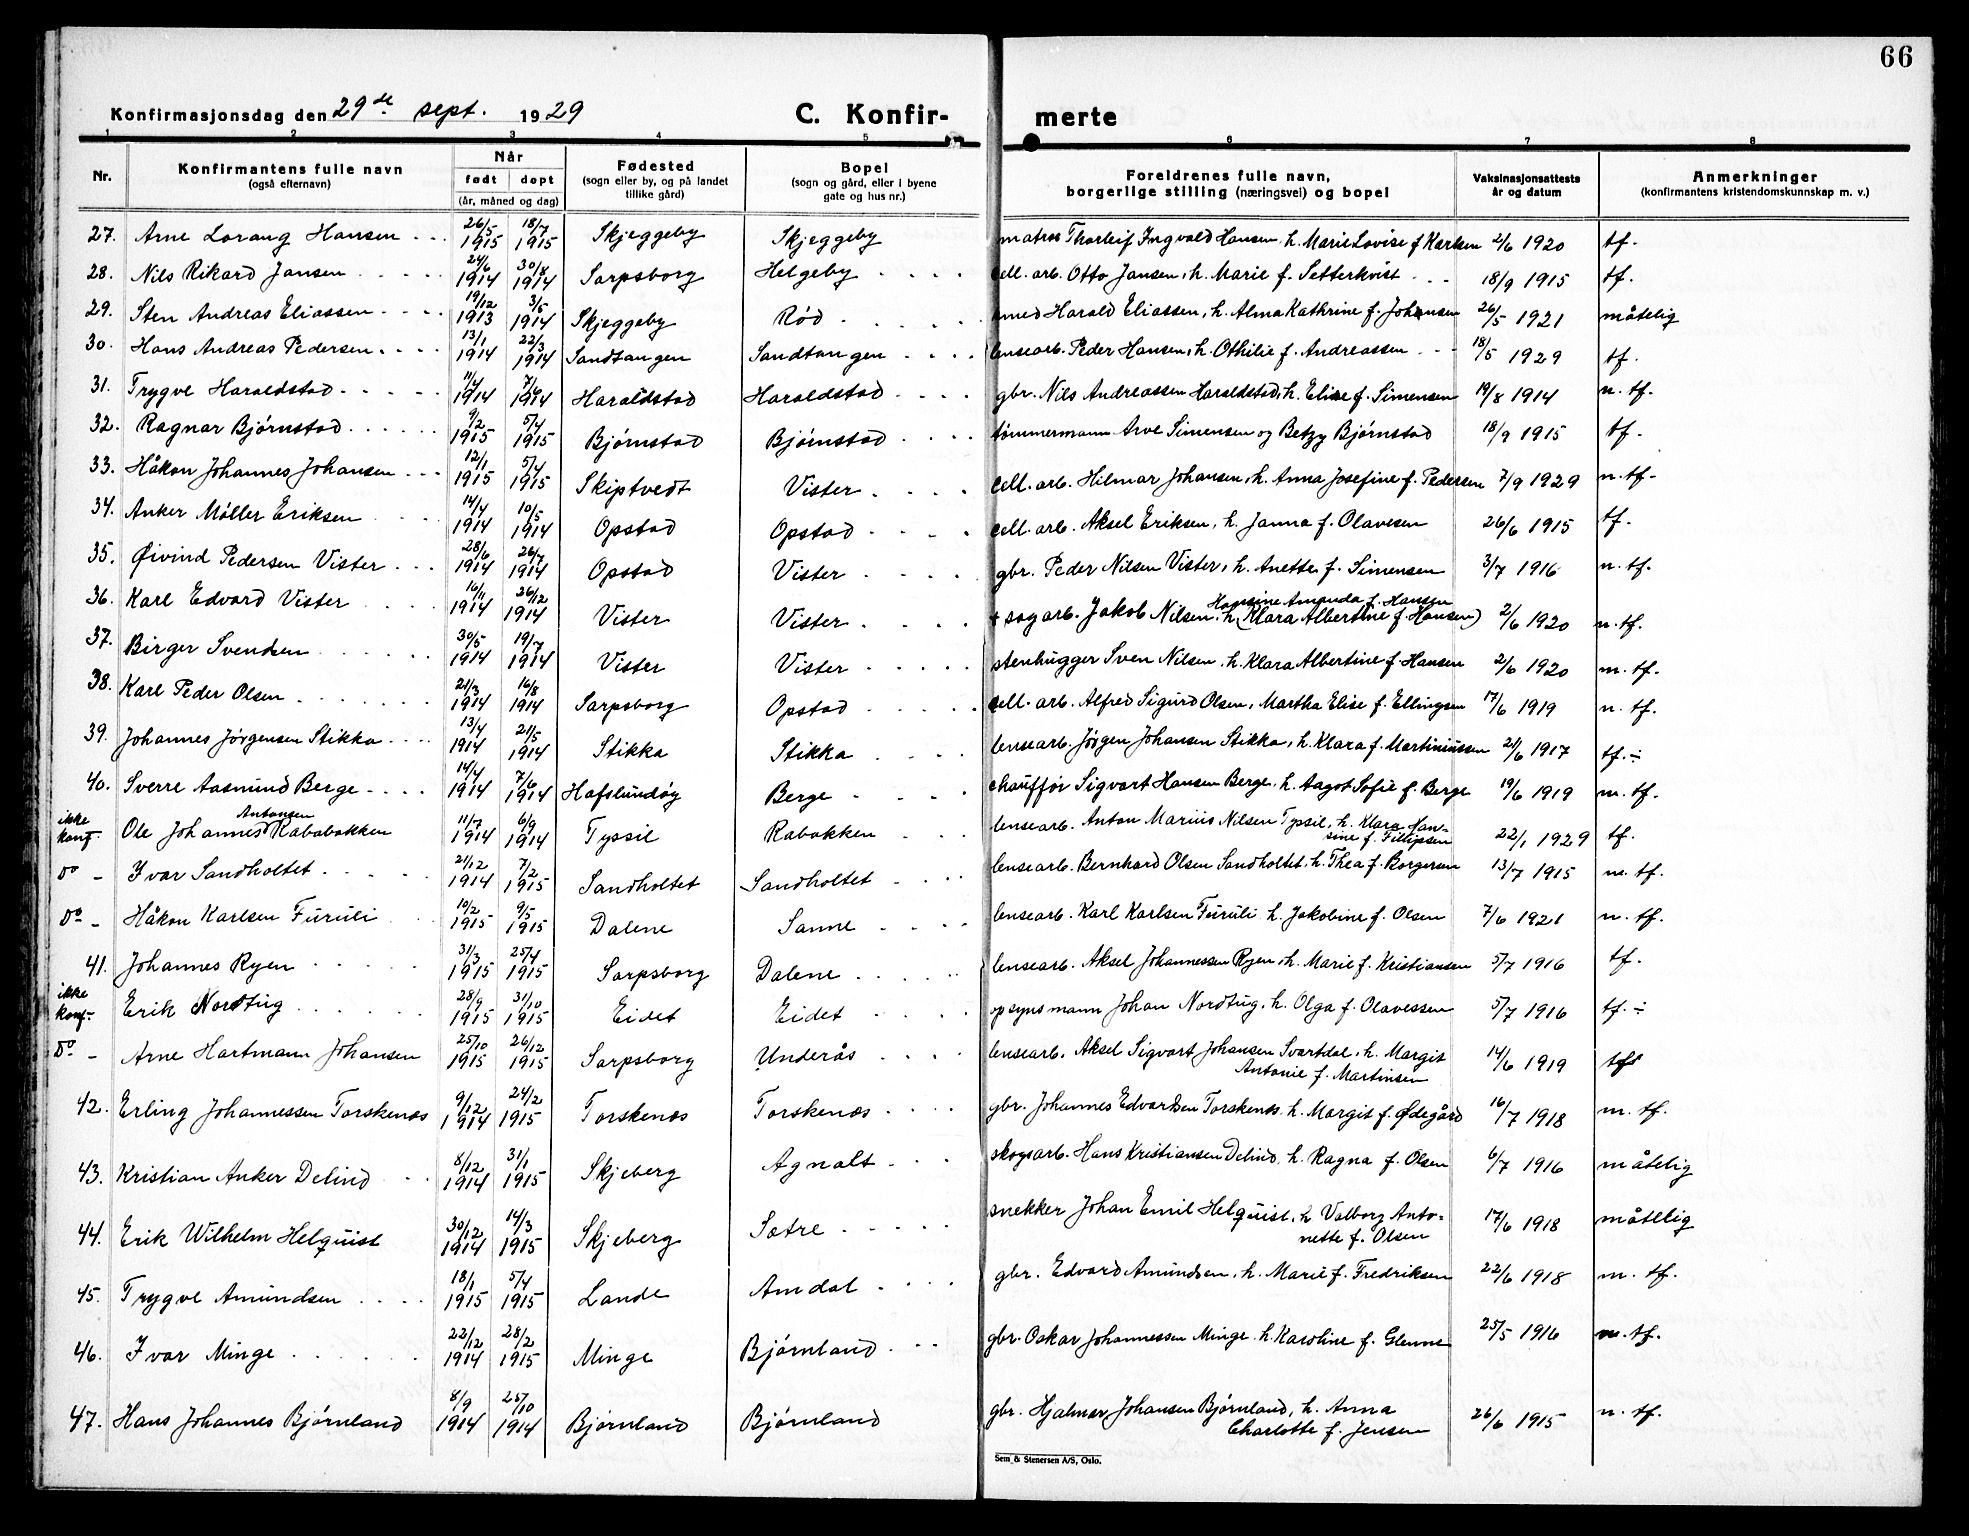 66
Konfirmasjonsdag den 29de sept. 1929 C. Konfir-merte
1 2 3 4 5 6 7 8
Nr. Konfirmantens fulle navn (også efternavn) Når født døpt (år, måned og dag) Fødested (sogn eller by, og på landet tillike gård) Bopel (sogn og gård, eller i byene gate og hus nr.) Foreldrenes fulle navn, borgerlige stilling (næringsvei) og bopel Vaksinasjonsattests år og datum Anmerkninger (konfirmantens kristendomskunnskap m. v.)
27. Arne Lorang Hansen 26/5 1915 18/7 1915 Skjeggeby Skjeggeby matros Thorleif Ingvald Hansen, h. Marie Lovise f Karlsen 2/6 1920 tf.
28. Nils Rikard Jansen 24/6 1914 30/8 1914 Sarpsborg Helgeby cell. arb. Otto Jansen, h. Marie f. Setterkvist 18/9 1915 tf.
29. Sten Andreas Eliassen 19/12 1913 3/5 1914 Skjeggeby Rød smed Harald Eliassen, h. Alma Kathrine f. Johansen 26/5 1921 måtelig
30. Hans Andreas Pedersen 13/1 1914 22/3 1914 Sandtangen Sandtangen lensearb. Peder Hansen, h. Othilie f. Andreassen 18/5 1929 tf.
31. Trygve Haraldstad 11/4 1914 7/6 1914 Haraldstad Haraldstad gbr. Nils Andreassen Haraldstad, h. Elise f. Simensen 19/8 1914 n. tf.
32. Ragnar Bjørnstad 9/2 1915 5/4 1915 Bjørnstad Bjørnstad tømmermann Arve Simensen og Betzy Bjørnstad 18/9 1915 tf.
33. Håkon Johannes Johansen 12/1 1915 5/4 1915 Skiptvedt Vister cell. arb. Hilmar Johansen, h. Anna Josefine f. Pedersen 7/9 1929 n. tf.
34. Anker Møller Eriksen 14/4 1914 10/5 1914 Opstad Opstad cell. arb. Aksel Eriksen, h. Janna f. Olavesen 26/6 1915 tf.
35. Øivind Pedersen Vister 28/6 1914 26/7 1914 Opstad Vister gbr. Peder Nilsen Vister, h. Anette f. Simensen 3/7 1916 n. tf.
36. Karl Edvard Vister 16/11 1914 26/12 1914 Vister Vister + sagarb. Jakob Nilsen, h. Hansine Amanda f. Hansen (Klara Albertine f. Hansen) 2/6 1920 n. tf.
37. Birger Svendsen 30/5 1914 19/7 1914 Vister Vister stenhugger Sven Nilsen, h. Klara Albertine f. Hansen 2/6 1920 m. tf.
38. Karl Peder Olsen 21/3 1914 16/8 1914 Sarpsborg Opstad cell. arb. Alfred Sigurd Olsen, Martha Elise f. Ellingsen 17/6 1919 n. tf.
39. Johannes Jørgensen Stikka 13/4 1914 21/5 1914 Stikka Stikka lensearb. Jørgen Johansen Stikka, h. Klara f. Martiniussen 21/6 1917 tf. ÷
40. Sverre Aasmund Berge 14/4 1914 7/6 1914 Hafslundøy Berge chauffør Sigvart Hansen Berge, h. Aagot Sofie f. Berge 19/6 1919 m. tf.
ikke konf. Ole Johannes Antonsen Rabakken 11/7 1914 6/9 1914 Tyssil Rabakken lensearb. Anton Marius Nilsen Tyssil, h. Klara Han-
sine f. Fillipsen 22/1 1929 tf.
do - Ivar Sandholtet 21/12 1914 7/2 1915 Sandholtet Sandholtet lensearb. Bernhard Olsen Sandholtet, h. Thea f. Borgersen 13/7 1915 m. tf.
do - Håkon Karlsen Furuli 10/2 1915 9/5 1915 Dalene Sanne lensearb. Karl Karlsen Furuli h. Jakobine f. Olsen 7/6 1921 n. tf.
41. Johannes Ryen 31/3 1915 25/4 1915 Sarpsborg Dalene lensearb. Aksel Johannessen Ryen, h. Marie f. Kristiansen 5/7 1916 tf.
ikke konf. Erik Nordtug 28/9 1915 31/10 1915 Eidet Eidet opsynsmann Johan Nordtug, h. Olga f. Olavessen 5/7 1916 tf. ÷
do - Arne Hartmann Johansen 25/10 1915 26/12 1915 Sarpsborg Underås lensearb. Aksel Sigvart Johansen Svartdal, h. Margit
Antonie f. Martinsen 14/6 1919 tf
42. Erling Johannessen Torskenæs 9/12 1914 24/2 1915 Torskenæs Torskenæs gbr. Johannes Edvardsen Torskenæs, h. Margit f. Ødegård 16/7 1918 m. tf.
43. Kristian Anker Delind 8/12 1914 31/1 1915 Skjeberg Agnalt skogsarb. Hans Kristiansen Delind, h. Ragna f. Olsen 6/7 1916 måtelig
44. Erik Wilhelm Helquist 30/12 1914 14/3 1915 Skjeberg Sætre snekker Johan Emil Helquist, h Valborg Anto-
nette f. Olsen 17/6 1918 måtelig
45. Trygve Amundsen 18/1 1915 5/4 1915 Lande Amdal gbr. Edvard Amundsen, h. Marie f. Fredriksen 22/6 1918 m. tf.
46. Ivar Minge 22/12 1914 28/2 1915 Minge Bjørnland gbr. Oskar Johannessen Minge h. Karoline f. Glenne 25/5 1916 m. tf.
47. Hans Johannes Bjørnland 8/9 1914 25/10 1914 Bjørnland Bjørnland gbr. Hjalmar Johansen Bjørnland, h. Anna
Charlotte f. Jensen 26/6 1915 n. tf.
Sem & Stenersen A/S, Oslo.